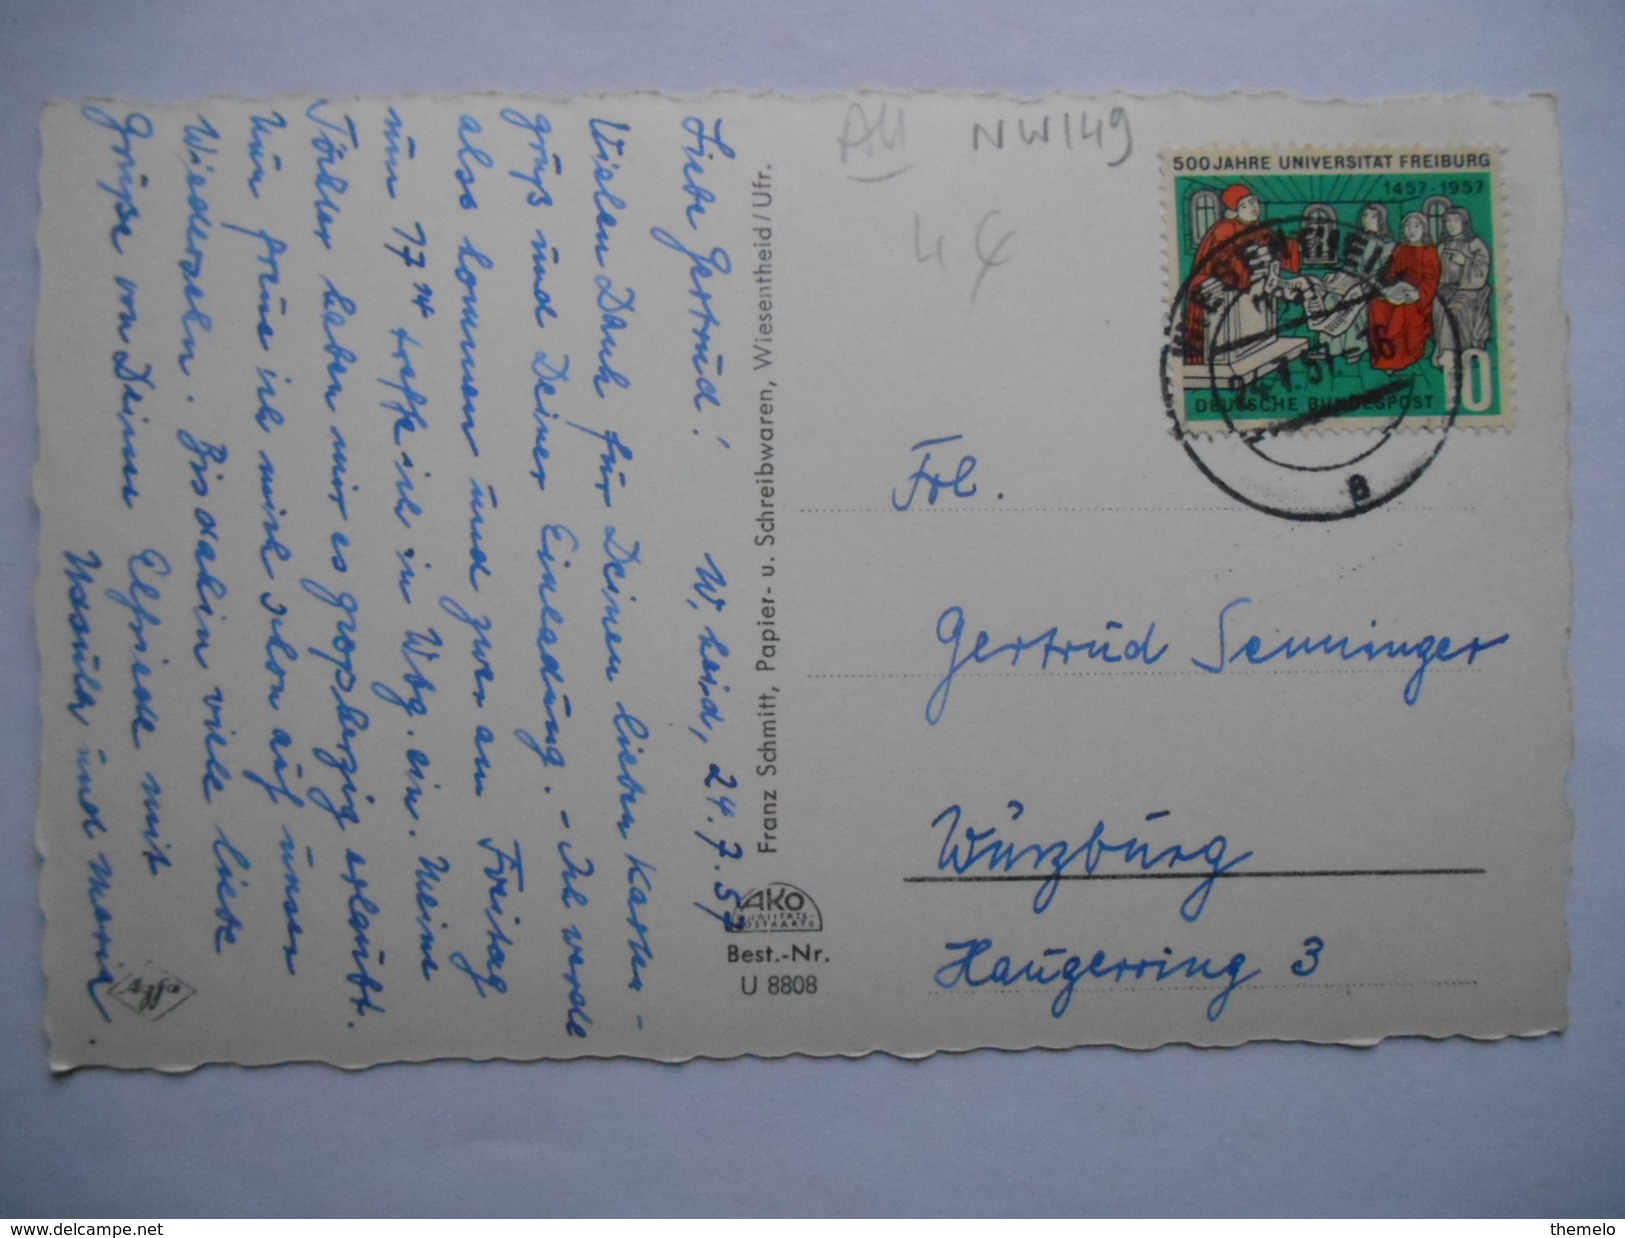 Liebe Gertrud!
W.heid, 24.7.57
Vielen Dank für Deinen lieben Karten-
gruß und Deiner Einladung. - Ich werde
also kommen und zwar am Freitag
um 17 14 treffe ich in Wbg. ein. Meine
Töchter haben mir es großherzig erlaubt.
Nun freue ich mich schon auf unser
Wiedersehn. Bis dahin viele liebe
Grüße von Deiner Elfriede mit
Ursula und Maria.
Agfa
Franz Schmitt, Papier- u. Schreibwaren, Wiesentheid/Ufr.
AKO
QUALITÄTS-
POSTKARTE
Best.-Nr.
U 8808
AU NW149
4€
500 JAHRE UNIVERSITÄT FREIBURG
1457-1957
DEUTSCHE BUNDESPOST
10
WIESENTHEID
24.7.57.-16
a
Frl.
Gertrud Senninger
Würzburg
Haugerring 3
www.delcampe.net
themelo